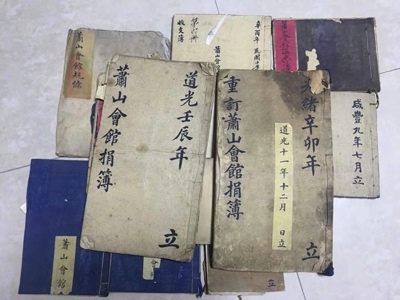 蕭山會館規條
第六冊
收支簿
辛酉年
咸豐九年七月立
道光壬辰年
蕭山會館捐簿
立
光緒辛卯年
重訂蕭山會館捐簿
道光十一年十二月 日立
立
蕭山會館
立